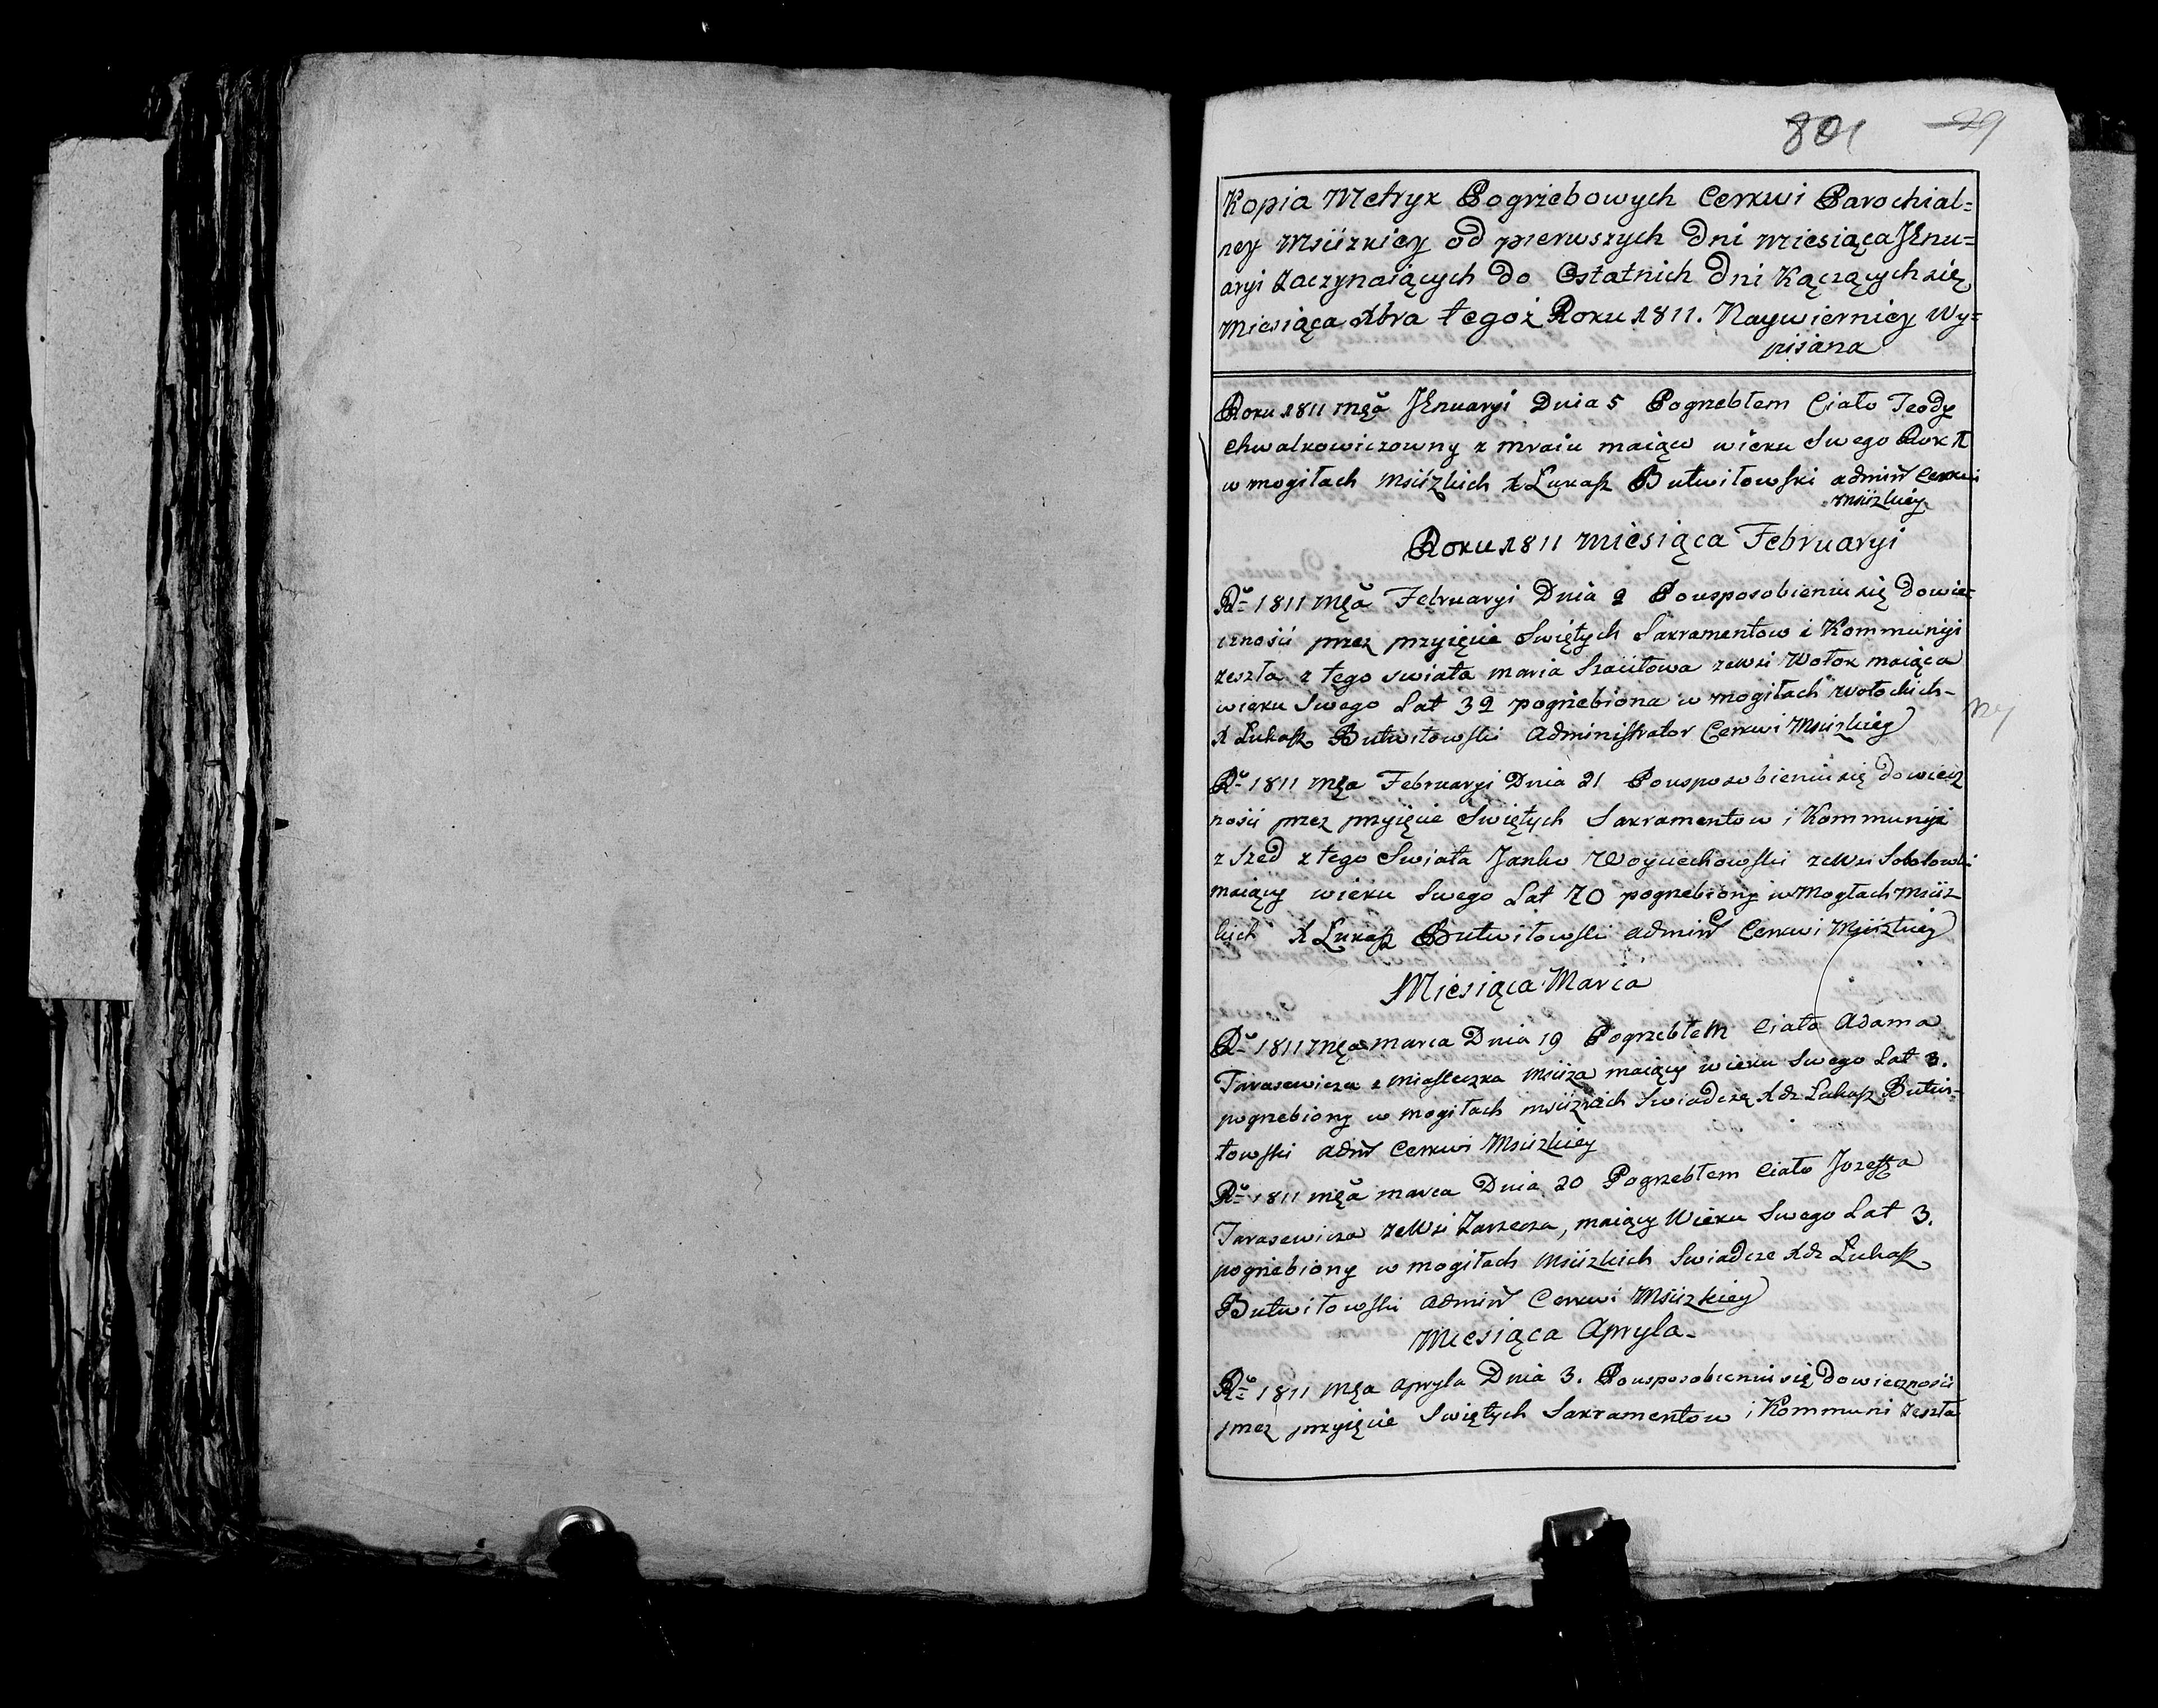 801 29
Kopia Metryk Pogrzebowych Cerkwi Parochial=
ney Msiizkiey od pierwszych Dni miesiąca Jĕnu=
aryi Zaczynaiących do Ostatnich Dni Kączących się
Miesiąca Xbra tegoż Roku 1811. Naywierniey Wy=
pisana
Roku 1811 mca Jĕnuaryi Dnia 5 Pogrzebłem Ciało Teody
Chwalkowiczowny z mraiu maiąca wieku Swego Rok
w mogiłach Msiizkich X Lukasz Butwiłowski admin Cerkwi
Msiizkiey
Roku 1811 miesiąca Februaryi
Rᵘ 1811 mca Februaryi Dnia 2 Pousposobieniu się Dowie=
cznosci przez przyięcie Swiętych Sakramentow i Kommunii
zeszła z tego swiata maria Szaiitowa ze Wsi Wołok maiąca
wieku Swego Lat 32 pogrzebiona w mogiłach wołockich
X Lukasz Butwiłowski Administrator Cerkwi Msiizkiey
Rᵘ 1811 mca Februaryi Dnia 21 Pousposobieniu się dowiecz
nosci przez przyięcie Swiętych Sakramentow i Kommunii
z Szed z tego Swiata Janko Woyciechowski zeWsi
maiący wieku Swego Lat 70 pogrzebiony w Mogłach Msiiz
kich X Lukasz Butwiłowski admin Cerkwi Msiizkiey
Miesiąca Marca
Rᵘ 1811 mca marca Dnia 19 Pogrzebłem Ciało Adama
Tarasewicza z miasteczka Msiiza maiący wieku Swego Lat 3.
pogrzebiony w mogiłach msiizkich Swiadczę Xdz Lukasz Butwi=
łowski adm Cerkwi Msiizkiey
Rᵘ 1811 mca marca Dnia 20 Pogrzebłem Ciało Jozeffa
Tarasewicza zeWsi Zarzecza, maiący Wieku Swego Lat 3.
pogrzebiony w mogiłach Msiizkich Swiadcze Xdz Lukasz
Butwiłowski admin Cerkwi Msiizkiey
Miesiąca Apryla
Rᵘ 1811 mca Apryla Dnia 3. Pousposobieniu się Dowiecznosci
przez przyięcie Swiętych Sakramentow i Kommuni zeszła